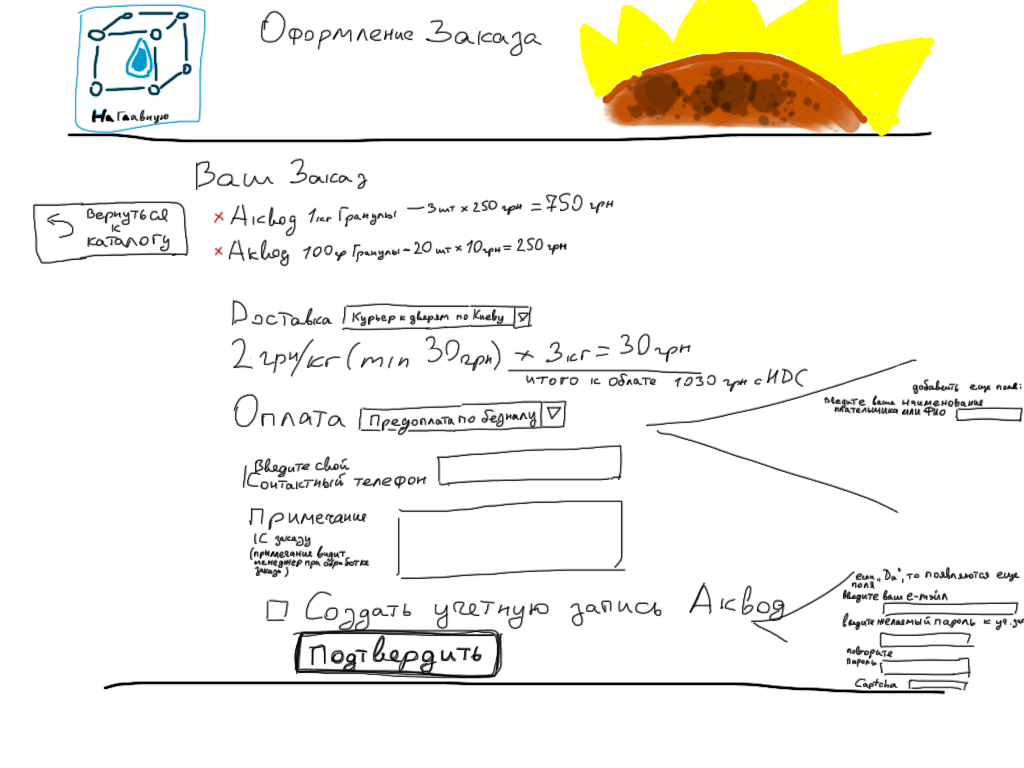 Оформление Заказа
На Главную
Ваш Заказ
Вернуться
к
каталогу
× Аквод 1кг Гранулы – 3шт × 250 грн = 750 грн
× Аквод 100гр Гранулы – 20 шт × 10грн = 250 грн
Доставка Курьер к дверям по Киеву
2 грн/кг (min 30грн) × 3кг = 30грн
итого к облате 1030 грн с НДС
Оплата Предоплата по безналу
добавить еще поля:
Введите ваше наименование
плательщика или Фио
Введите свой
Контактный телефон
Примечание
К заказу
(примечания видит
менеджер при обработке
заказа)
Создать учетную запись Аквод
Подтвердить
если „Да“, то появляются еще
поля
Введите ваш е-мэйл
введите желаемый пароль к уч. зап
повторите
пароль
Captcha